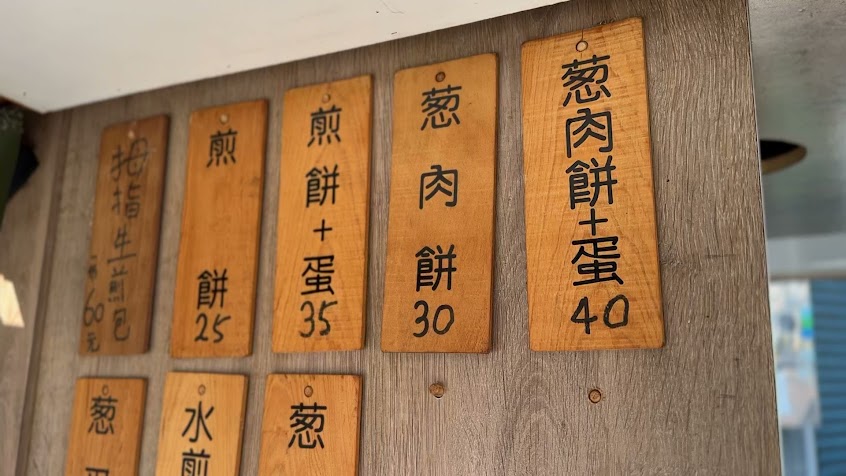 葱肉餅+蛋
40
葱肉餅
30
煎餅+蛋
35
煎餅
25
拇指生煎包
一份60元
葱
水煎
葱